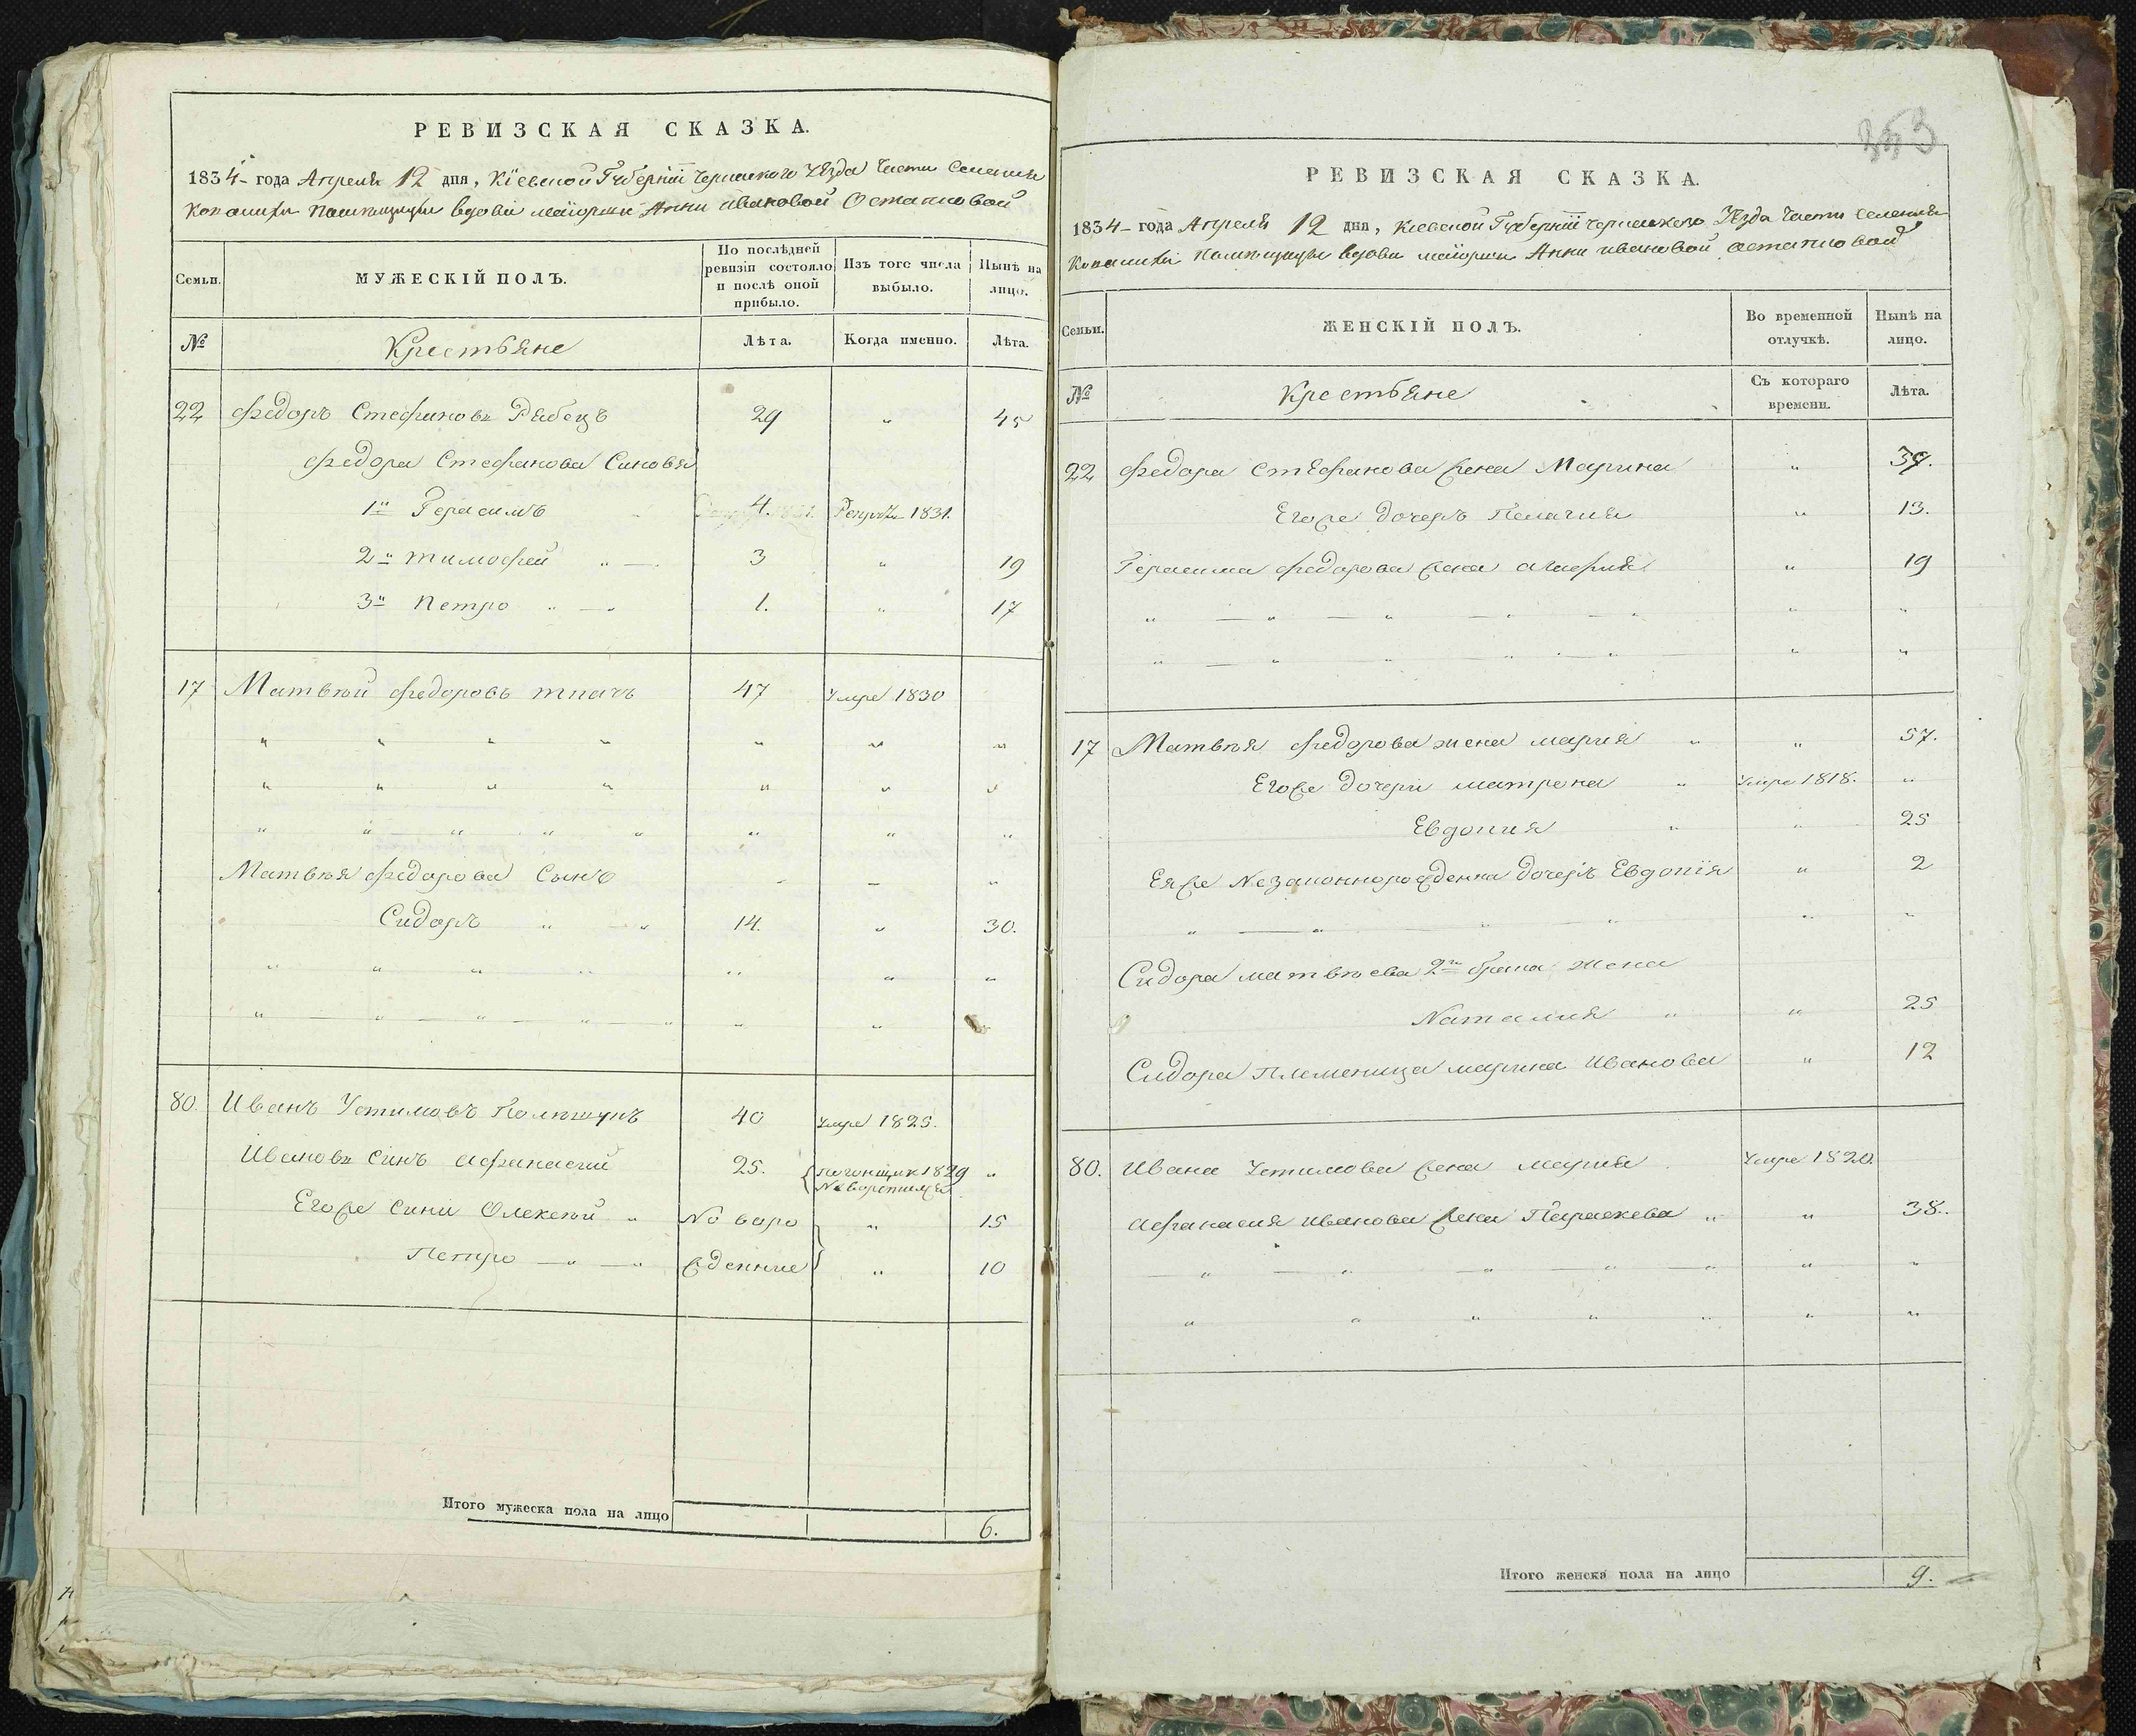 РЕВИЗСКАЯ СКАЗКА.
1834 года Апреля 12 дня, Кіевской Губерніи Черкаского Уѣзда Части Селения
помѣщицы вдови маіорши Анни Ивановой Остаповой
Семьи.
МУЖЕСКІЙ ПОЛЪ.
По послѣдней ревизіи состояло и послѣ оной прибыло.
Изъ того числа выбыло.
Нынѣ на лицо.
№
Крестьяне
Лѣта.
Когда именно.
Лѣта.
22 Федоръ Стефановъ Рябецъ 29 " 45
Федора Стефанова Синовья
1й Герасимъ 4. 1831.
2й Тимофей " — 3 " 19
3й Петро " — " 1. " 17
17 Матвѣй Федоровъ Ткачъ 47 Умре 1830
Матвѣя Федорова Сынъ
Сидоръ " " 14. " 30.
80. Иванъ Устимовъ 40 Умре 1825.
Ивановъ Синъ Афанасий 25. 1829 "
Егоже Сини Олексѣй " Новоро " 15
Петро — " — " жденние " 10
Итого мужеска пола на лицо 6.
353
РЕВИЗСКАЯ СКАЗКА.
1834 года Апреля 12 дня, Киевской Губерніи Черкаского Уѣзда Части Селения
помѣщицы вдови маіорши Анни Ивановой Остаповой
Семьи.
ЖЕНСКІЙ ПОЛЪ.
Во временной отлучкѣ.
Нынѣ на лицо.
№
Крестьяне
Съ котораго времени.
Лѣта.
22 Федора Стефанова жена Марина " 39.
Егоже дочерь Пелагия " 13.
Герасима Федорова жена " 19
17 Матвѣя Федорова жена Мария " " 57.
Егоже дочери Матрона " Умре 1818. "
Евдокия " " 25
Еяже Незаконнорожденна дочерь Евдокія " 2
Сидора Матвѣева 2го брака жена
Наталия " " 25
Сидора племеница Марина Иванова " 12
80. Ивана Устимова жена Мария Умре 1820.
Афанасия Иванова жена Параскева " " 38.
Итого женска пола на лицо 9.